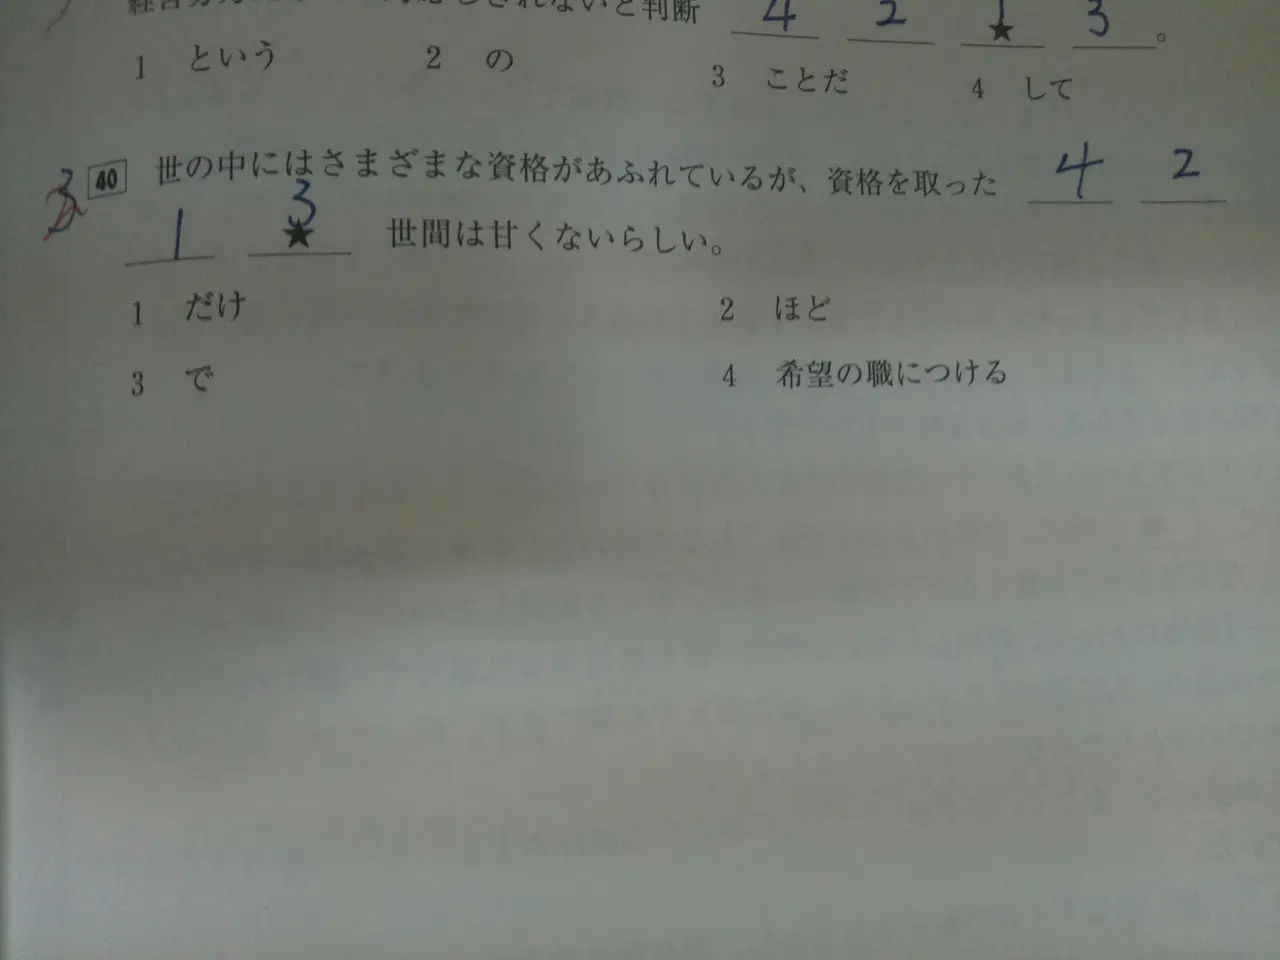 されないと判断 4 2 1★ 3 。
1 という 2 の 3 ことだ 4 して
3 40 世の中にはさまざまな資格があふれているが、資格を取った 4 2
1 3★ 世間は甘くないらしい。
1 だけ 2 ほど
3 で 4 希望の職につける